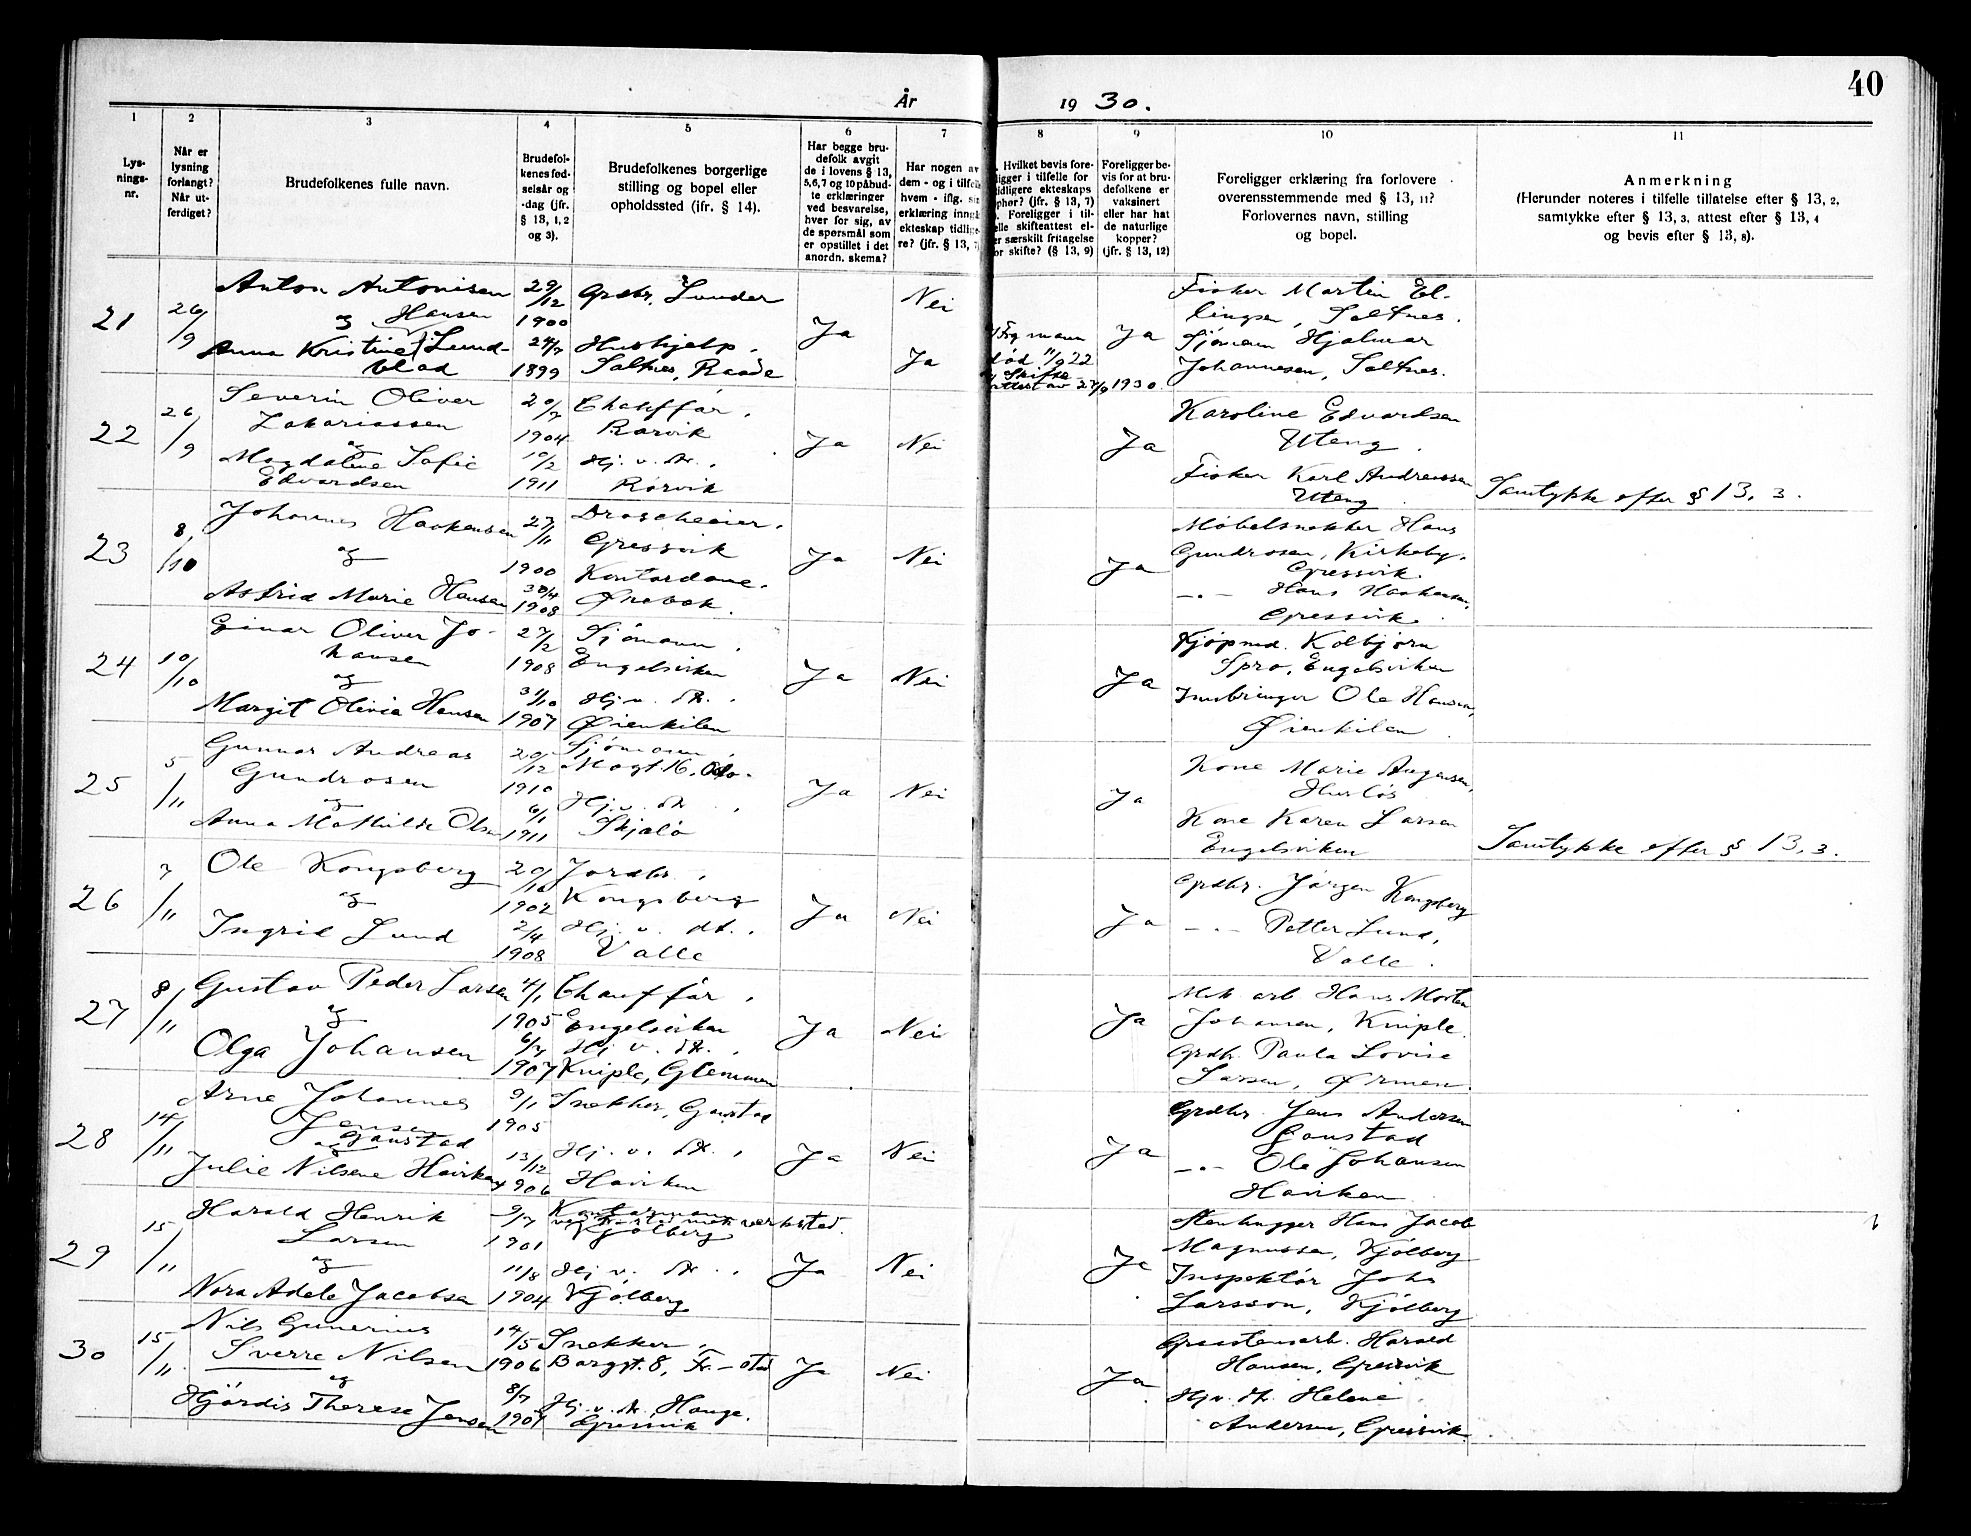 40
År 1930.
1 2 3 4 5 6 7 8 9 10 11
Lys-
nings-
nr.
Når er
lysning
forlangt?
Når ut-
ferdiget?
Brudefolkenes fulle navn.
Brudefol-
kenes fød-
selsår og
-dag (jfr.
§ 13, 1, 2
og 3).
Brudefolkenes borgerlige
stilling og bopel eller
opholdssted (ifr. § 14).
Har begge bru-
defolk avgit
de i lovens § 13,
5,6,7 og 10 påbud-
te erklæringer
ved besvarelse,
hver for sig, av
de spørsmål som
er opstillet i det
anordn. skema?
Har nogen av
dem - og i tilfelle
hvem - iflg.
erklæring inng
ekteskap tidlige-
re? (jfr. § 13, 7)
Hvilket bevis fore-
ligger i tilfelle for
tidligere ekteskaps
ophør? (jfr. § 13, 7)
Foreligger i til-
felle skifteattest el-
er særskilt fritagelse
or skifte? (§ 13, 9)
Foreligger be-
vis for at bru-
defolkene er
vaksinert
eller har hat
de naturlige
kopper?
(jfr. § 13, 12)
Foreligger erklæring fra forlovere
overensstemmende med § 13, 11?
Forlovernes navn, stilling
og bopel.
Anmerkning
(Herunder noteres i tilfelle tillatelse efter § 13, 2,
samtykke efter § 13, 3, attest efter § 13, 4
og bevis efter § 13, 8).
21
26/9
Anton Antonisen
Hansen
og
Anna Kristine Lund-
blad
29/12
1900
24/7
1899
Grdbr. Lunder
Hushjelp.
Saltnes, Raade
Ja
Nei
Ja
Frg mann
død 11/9 22
Skifte
attest av 27/9 1930.
Ja
Fisker Martin El-
lingsen, Saltnes.
Sjømann Hjalmar
Johannesen, Saltnes.
22
26/9
Severin Oliver
Zakariassen
og
Magdalene Sofie
Edvardsen
20/7
1904
10/2
1911
Chauffør.
Rørvik
Hj. v. dt.,
Rørvik
Ja
Nei
Ja
Karoline Edvardsen
Uteng.
Fisker Karl Andreassen
Uteng
Samtykke efter § 13, 3.
23
8/10
Johannes Haakensen
og
Astrid Marie Hansen
27/11
1900
30/4
1908
Droscheeier.
Gressvik
Kontordame.
Ørebæk.
Ja
Nei
Ja
Møbelsnekker Hans
Gundrosen, Kirkeby.
Gressvik.
—„— Hans Haakensen,
Gressvik.
24
10/10
Einar Oliver Jo-
hansen
og
Margit Olivia Hansen
27/2
1908
31/10
1907
Sjømann,
Engelsviken
Hj. v. dt.,
Øienkilen
Ja
Nei
Ja
Kjøpmd. Kolbjørn
Spro, Engelsviken
Innbringer Ole Hansen,
Øienkilen.
25
5/11
Gunnar Andreas
Gundrosen
og
Anna Mathilde Olsen
20/12
1910
6/1
1911
Sjømann,
Magt. 16, Oslo.
Hj. v. dt.,
Skjælø
Ja
Nei
Ja
Kone Marie Augensen,
Husløs
Kone Karen Larsen
Engelsviken
Samtykke efter § 13, 3.
26
7/11
Ole Kongsberg
og
Ingrid Lund
20/10
1902
2/4
1908
Jordbr.,
Kongsberg
Hj. v. dt.,
Valle
Ja
Nei
Ja
Grdbr. Jørgen Kongsberg
—„— Petter Lund,
Valle.
27
8/11
Gustav Peder Larsen
og
Olga Johansen
4/1
1905
6/7
1907
Chauffør,
Engelsviken
Hj. v. dt.,
Kniple, Glemmen
Ja
Nei
Ja
Mek. arb. Hans Morten
Johansen, Kniple.
Grdbr. Paula Lovise
Larsen, Ørmen.
28
14/11
Arne Johannes
Jensen
Gaustad
og
Julie Nilsene Haviken
9/1
1905
13/12
1906
Snekker, Gaustad
Hj. v. dt.,
Haviken
Ja
Nei
Ja
Grdbr. Jens Andersen
Gaustad
—„— Ole Johansen
Haviken
29
15/11
Harald Henrik
Larsen
og
Nora Adele Jacobsen
9/7
1901
11/8
1904
Kontormann
mek verksted.
Kjølberg
Hj. v. dt.,
Kjølberg
Ja
Nei
Ja
Stenhugger Hans Jacob
Magnussen, Kjølberg
Inspektør John
Larsson, Kjølberg
30
15/11.
Nils Gunerius
Sverre Nilsen
og
Hjørdis Therese Jensen
14/5
1906
8/7
1907
Snekker,
Borggt. 8, Fr-stad
Hj. v. dt. Hauge.
Gressvik
Ja
Nei
Ja
Gravstensarb. Harald
Hansen, Gressvik
Hj.v. dt. Helene
Andersen, Gressvik.